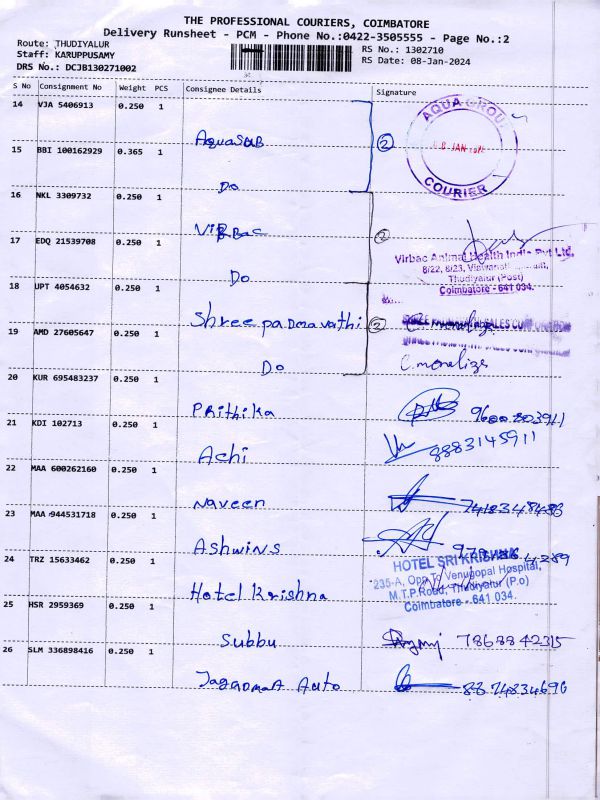 THE PROFESSIONAL COURIERS, COIMBATORE
Delivery Runsheet - PCM - Phone No.:0422-3505555 - Page No.:2
Route: THUDIYALUR
Staff: KARUPPUSAMY
DRS No.: DCJB130271002
RS No.: 1302710
RS Date: 08-Jan-2024
S No Consignment No Weight PCS Consignee Details Signature
14 VJA 5406913 0.250 1 AquaSUB 2
AQUA GROUP
COURIER
15 BBI 100162929 0.365 1 Do
16 NKL 3309732 0.250 1 VIRBAC 2
17 EDQ 21539708 0.250 1 Do
Virbac Animal Health India Pvt Ltd.
8/22, 8/23,
Thudiyalur (Post)
Coimbatore - 641 034.
18 UPT 4054632 0.250 1 Shree padmavathi 2
19 AMD 27605647 0.250 1 Do C. monaliza
20 KUR 695483237 0.250 1 Prithika
21 KDI 102713 0.250 1 Achi 8883145911
22 MAA 600262160 0.250 1 Naveen
23 MAA 944531718 0.250 1 Ashwins
24 TRZ 15633462 0.250 1 Hotel Krishna
HOTEL SRI KRISHNA
235-A, Opp.To Venugopal Hospital,
M.T.P.Road, Thudiyalur (P.o)
Coimbatore - 641 034.
25 HSR 2959369 0.250 1 Subbu 7868842315
26 SLM 336898416 0.250 1 Jaganmat Auto 8874834696